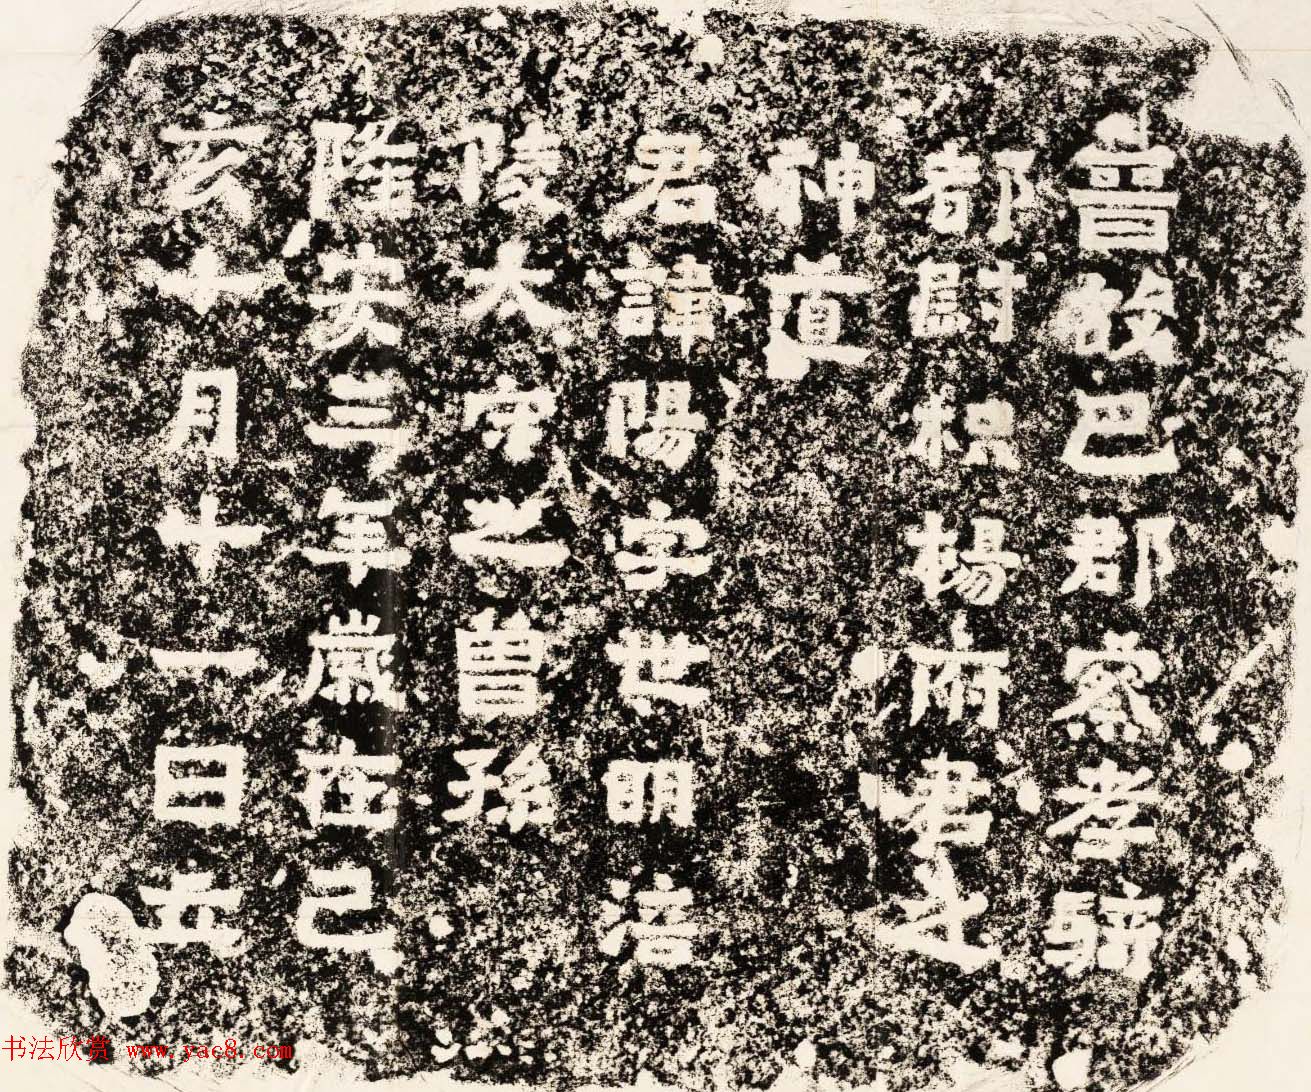 晉故巴郡察孝騎
都尉枳楊府君之
神道
君諱陽字世明涪
陵太守之曾孫
隆安三年歲在己
亥十月十一日立
书法欣赏 www.yac8.com